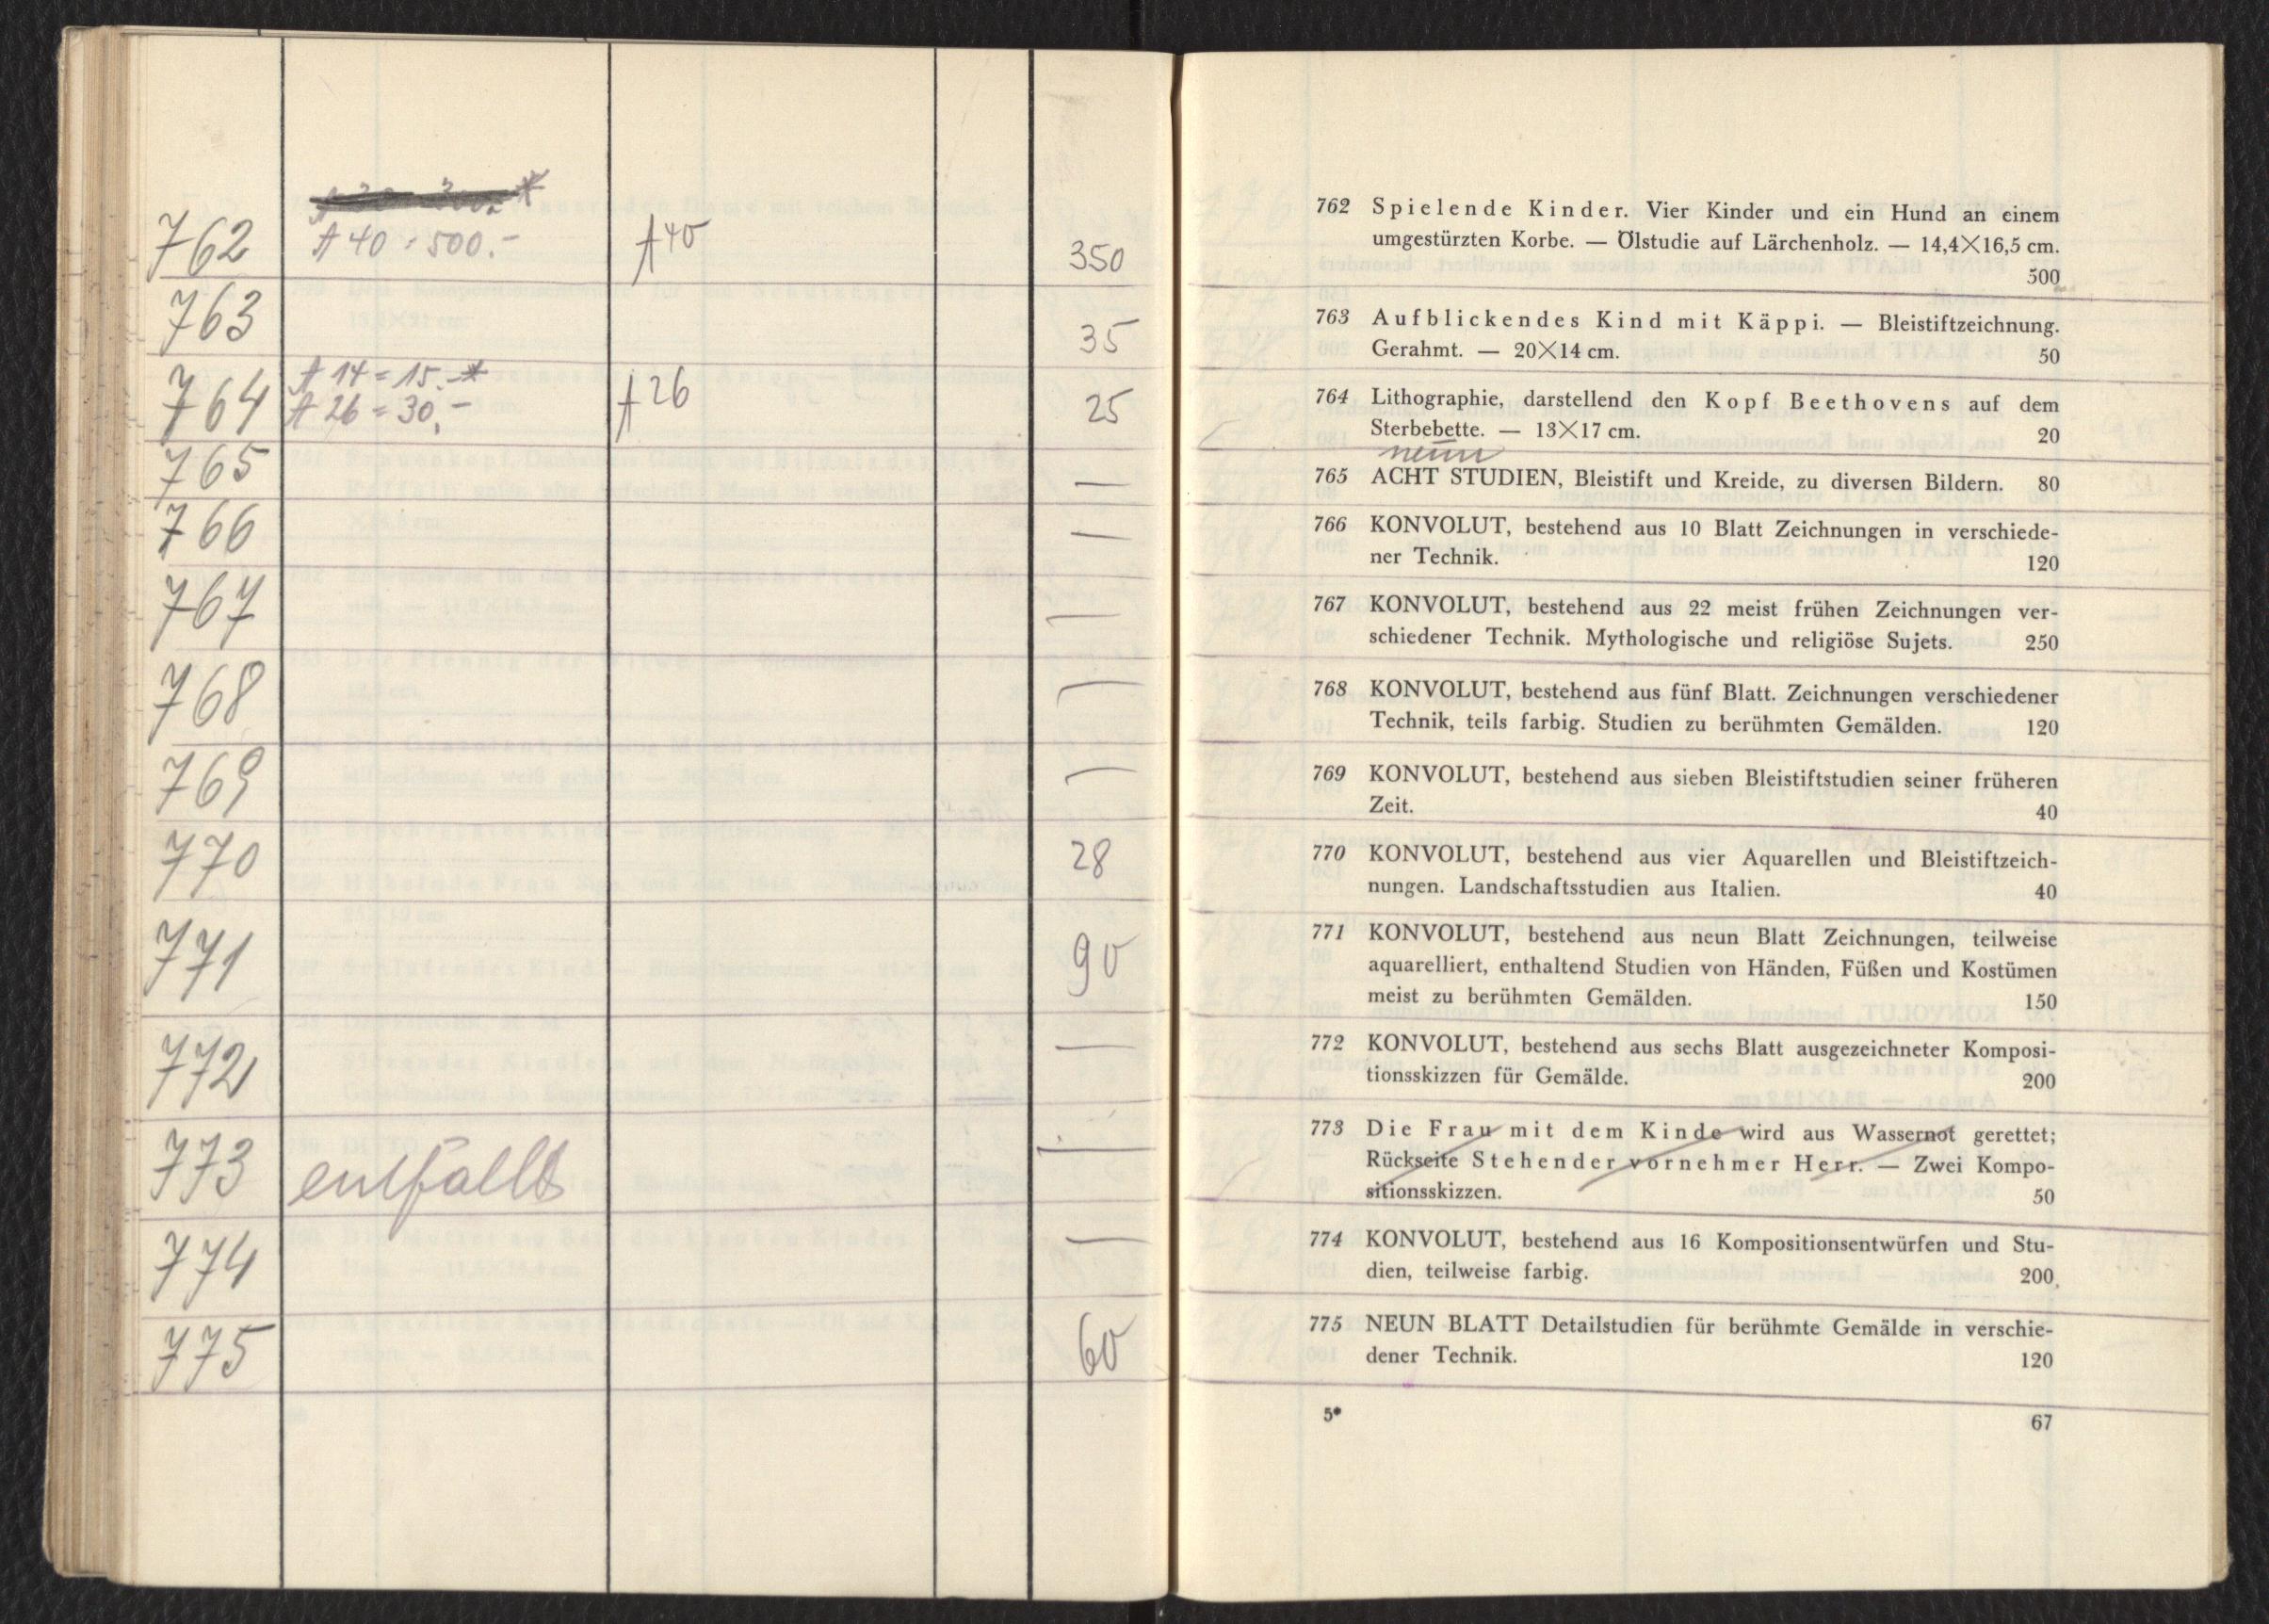 762 A 40 = 500.- A 40 350
763 35
764 A 14 = 15.-*
A 26 = 30,- A 26 25
765 —
766 —
767 —
768 —
769 —
770 28
771 90
772 —
773 entfällt —
774 —
775 60
762 Spielende Kinder. Vier Kinder und ein Hund an einem
umgestürzten Korbe. — Ölstudie auf Lärchenholz. — 14,4×16,5 cm.
500
763 Aufblickendes Kind mit Käppi. — Bleistiftzeichnung.
Gerahmt. — 20×14 cm. 50
764 Lithographie, darstellend den Kopf Beethovens auf dem
Sterbebette. — 13×17 cm. 20
neun
765 ACHT STUDIEN, Bleistift und Kreide, zu diversen Bildern. 80
766 KONVOLUT, bestehend aus 10 Blatt Zeichnungen in verschiede-
ner Technik. 120
767 KONVOLUT, bestehend aus 22 meist frühen Zeichnungen ver-
schiedener Technik. Mythologische und religiöse Sujets. 250
768 KONVOLUT, bestehend aus fünf Blatt. Zeichnungen verschiedener
Technik, teils farbig. Studien zu berühmten Gemälden. 120
769 KONVOLUT, bestehend aus sieben Bleistiftstudien seiner früheren
Zeit. 40
770 KONVOLUT, bestehend aus vier Aquarellen und Bleistiftzeich-
nungen. Landschaftsstudien aus Italien. 40
771 KONVOLUT, bestehend aus neun Blatt Zeichnungen, teilweise
aquarelliert, enthaltend Studien von Händen, Füßen und Kostümen
meist zu berühmten Gemälden. 150
772 KONVOLUT, bestehend aus sechs Blatt ausgezeichneter Komposi-
tionsskizzen für Gemälde. 200
773 Die Frau mit dem Kinde wird aus Wassernot gerettet;
Rückseite Stehender vornehmer Herr. — Zwei Kompo-
sitionsskizzen. 50
774 KONVOLUT, bestehend aus 16 Kompositionsentwürfen und Stu-
dien, teilweise farbig. 200
775 NEUN BLATT Detailstudien für berühmte Gemälde in verschie-
dener Technik. 120
5* 67